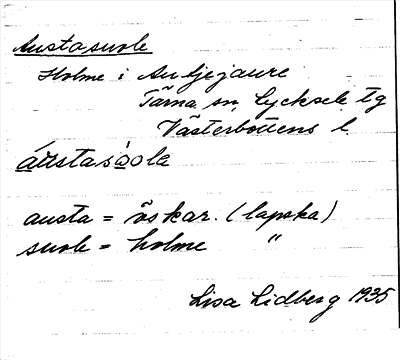 Austasuole
Holme i Autjejaure
Tärna sn, Lycksele tg
Västerbottens l.
áustasùola
austa = öskar. (lapska)
suole = holme "
Lisa Lidberg 1935